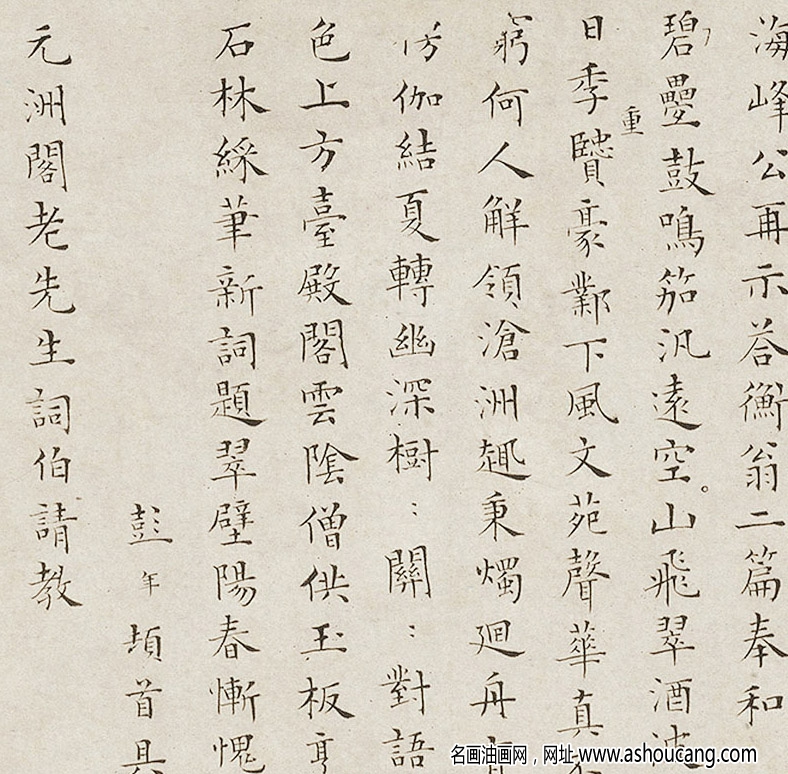 海峰公再示荅衡翁二篇奉和
碧疊鼓鳴笳汎遠空山飛翠酒波
重
日季賢豪鄴下風文苑聲華真
窮何人解領滄洲趣秉燭迴舟
伽結夏轉幽深樹〻關〻對語
色上方臺殿閣雲陰僧供玉板
石林綵筆新詞題翠壁陽春慚愧
彭年頓首具
元洲閣老先生詞伯請教
名画油画网，网址·www.ashoucang.com